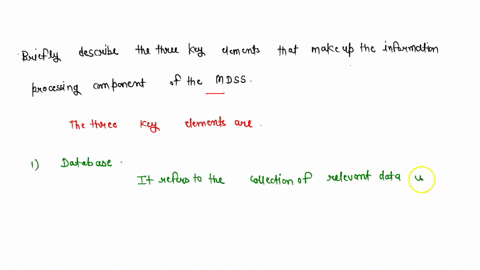 Briefly describe the three key elements that make up the information
processing component of the MDSS.
The three key elements are.
1) Database.
It refers to the collection of relevant data